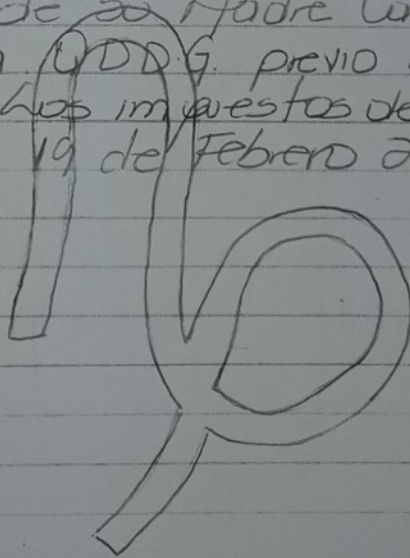 de su Madre
Q.D.D.G. previo
Los impuestos de
19 de Febrero 2